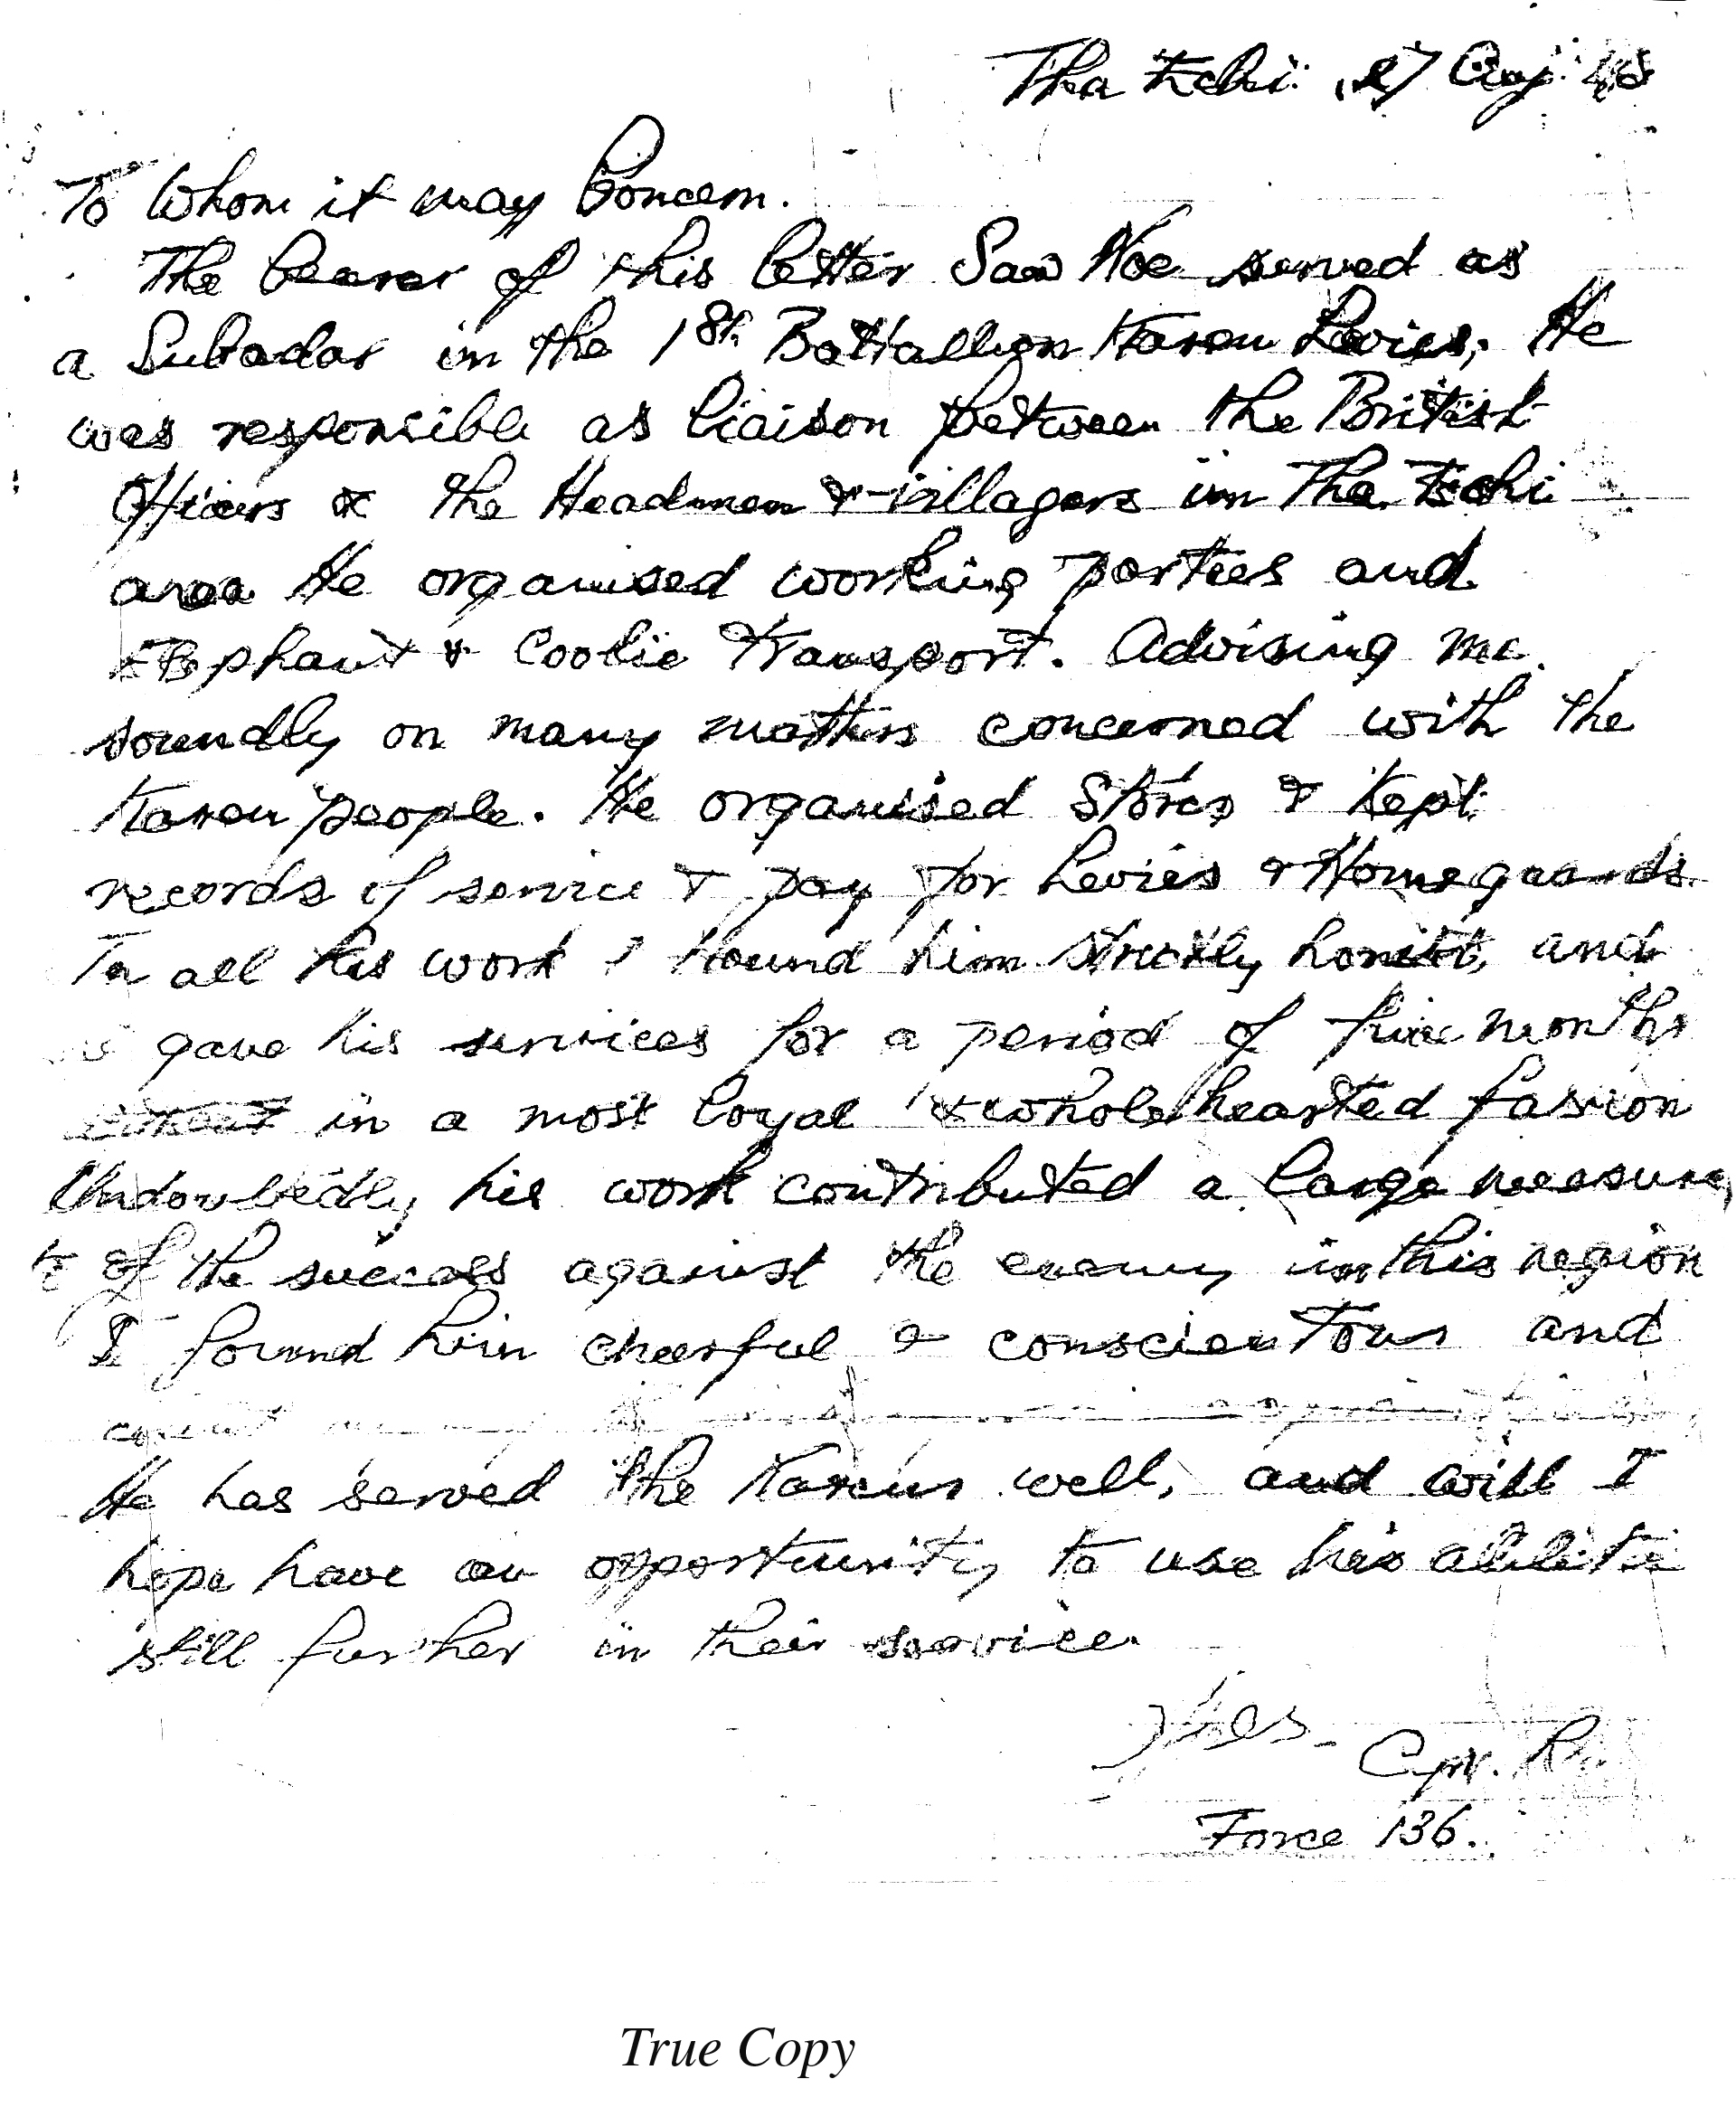 Tha Tchi 27 Aug. 45
To Whom it may Concern.
The bearer of this letter Saw Noe served as
a Subadar in the 1st Battallion Karen Levies. He
was responsible as liaison between the British
Officers & the Headmen & villagers in Tha Tchi
area He organised working parties and
Elephant & Coolie Transport. Advising me
soundly on many matters concerned with the
Karen people. He organised Stores & kept
records of service & pay for Levies & Homeguards
In all his work I found him strictly honest, and
gave his services for a period of five months
in a most loyal & wholehearted fasion
Undoubtedly his work contributed a large measure
of the success against the enemy in this region
I found him cheerful & conscientous and
He has served the Karens well, and will I
hope have an opportunity to use his abilitie
still further in their service.
Capt.
Force 136.
True Copy